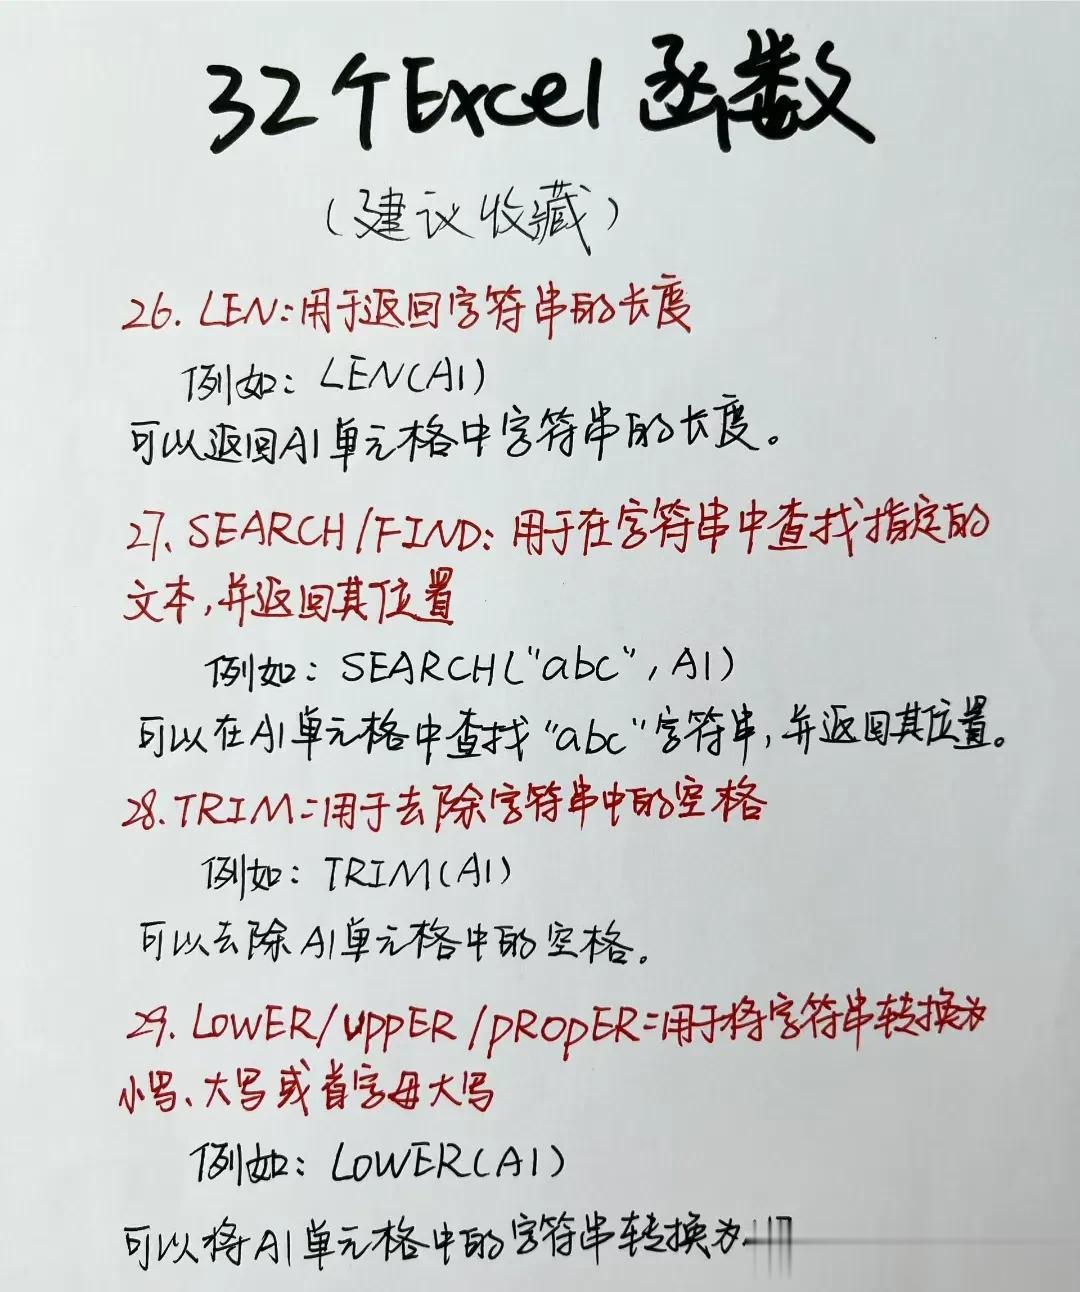 32个Excel函数
（建议收藏）
26. LEN：用于返回字符串的长度
例如：LEN(A1)
可以返回A1单元格中字符串的长度。
27、SEARCH/FIND：用于在字符串中查找指定的
文本，并返回其位置
例如：SEARCH("abc"，A1)
可以在A1单元格中查找"abc"字符串，并返回其位置。
28.TRIM：用于去除字符串中的空格
例如：TRIM(A1)
可以去除A1单元格中的空格。
29. LOWER/UPPER/PROPER：用于将字符串转换为
小写、大写或首字母大写
例如：LOWER(A1)
可以将A1单元格中的字符串转换为